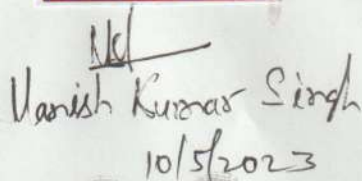 Manish Kumar Singh
10/5/2023